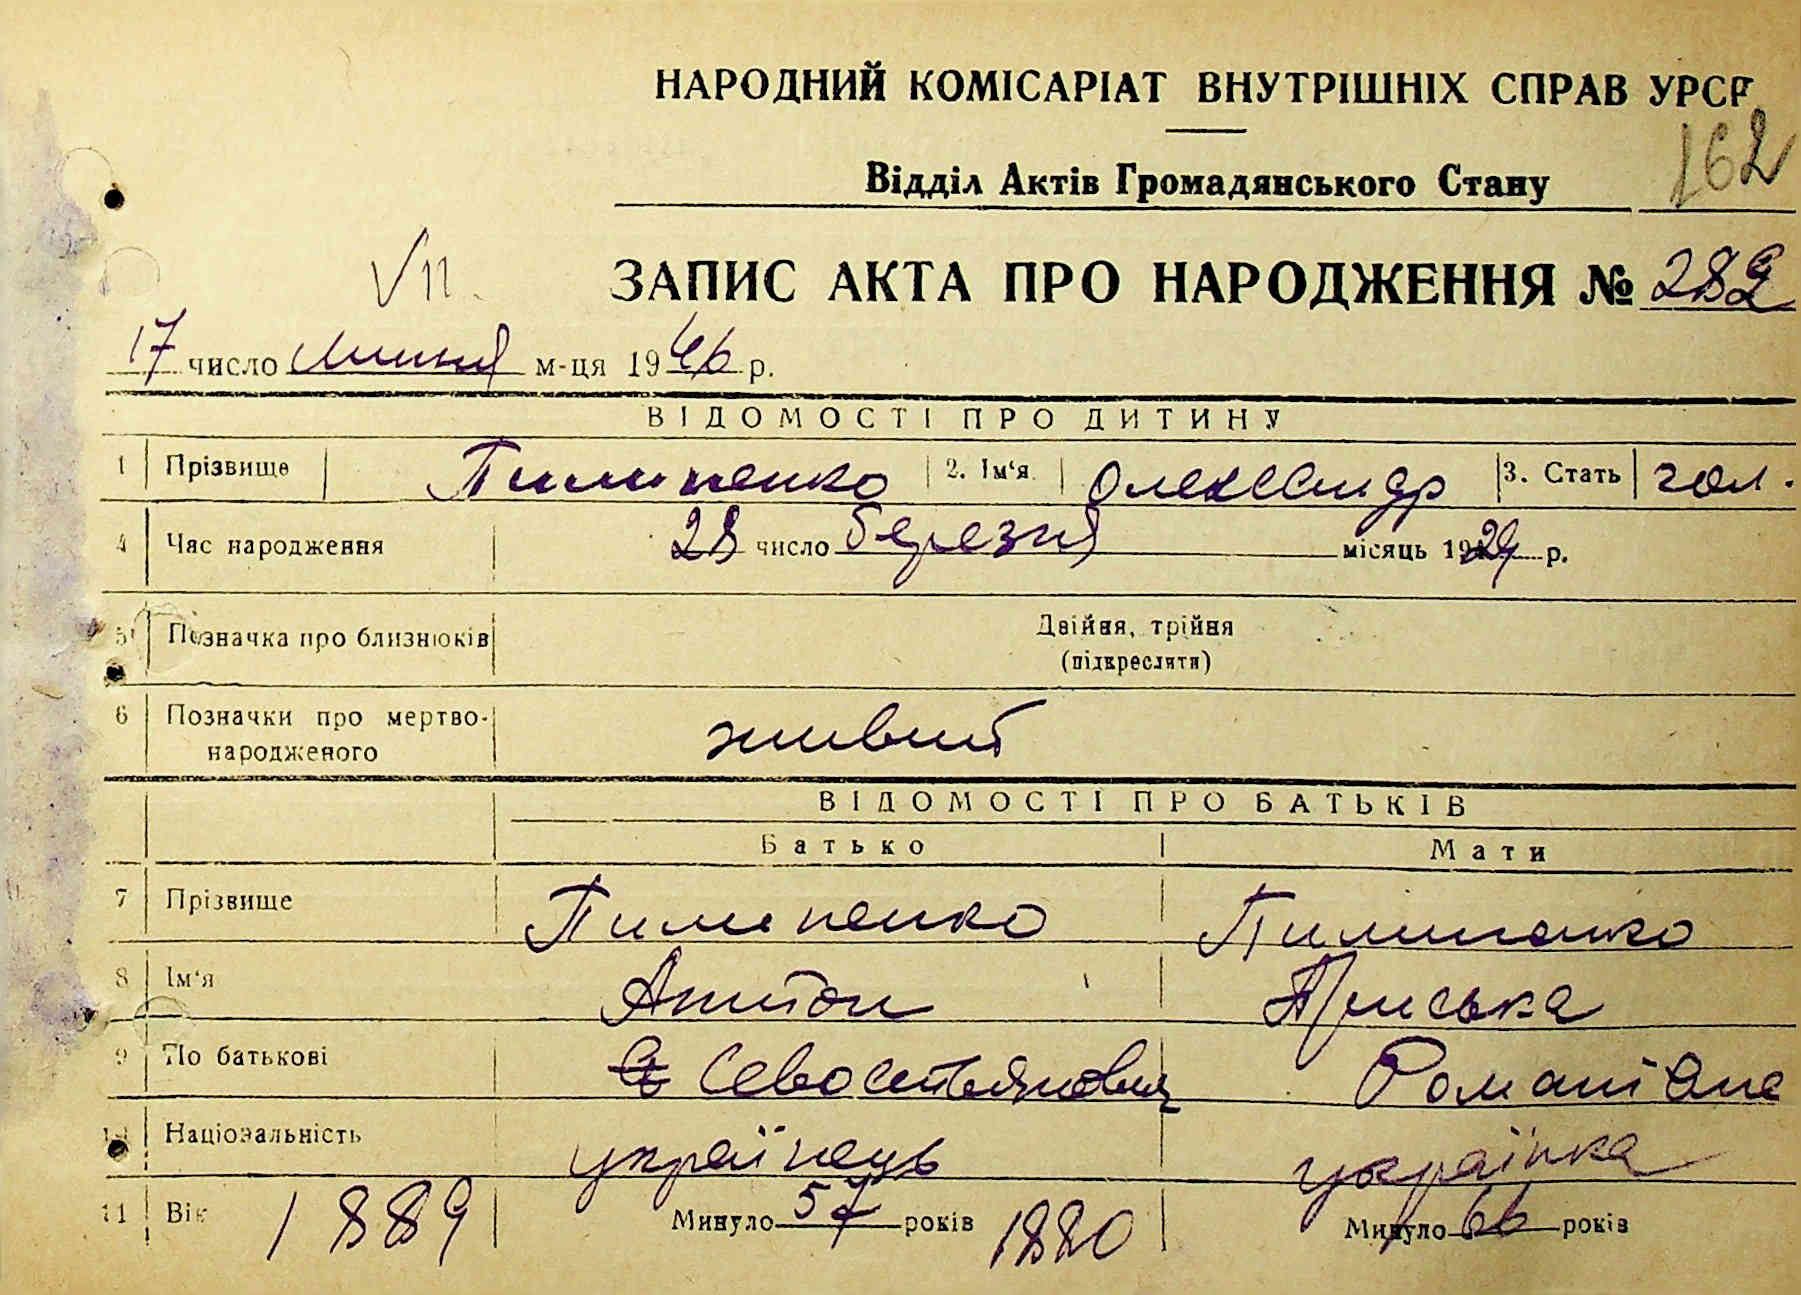 НАРОДНИЙ КОМІСАРІАТ ВНУТРІШНІХ СПРАВ УРСР
162
Відділ Актів Громадянського Стану
VII.
ЗАПИС АКТА ПРО НАРОДЖЕННЯ № 282
17 число липня м-ця 1946 р.
ВІДОМОСТІ ПРО ДИТИНУ
1 Прізвище Пилипенко 2. Ім'я Олександр 3. Стать чол.
4 Час народження 28 число березня місяць 1924 р.
5 Позначка про близнюків Двійня, трійня
(підкреслити)
6 Позначки про мертво-
народженого живий
ВІДОМОСТІ ПРО БАТЬКІВ
Батько Мати
7 Прізвище Пилипенко Пилипенко
8 Ім'я Антон Приська
9 По батькові Севостьянович Романівна
10 Національність українець українка
11 Вік 1889 Минуло 57 років 1880 Минуло 66 років